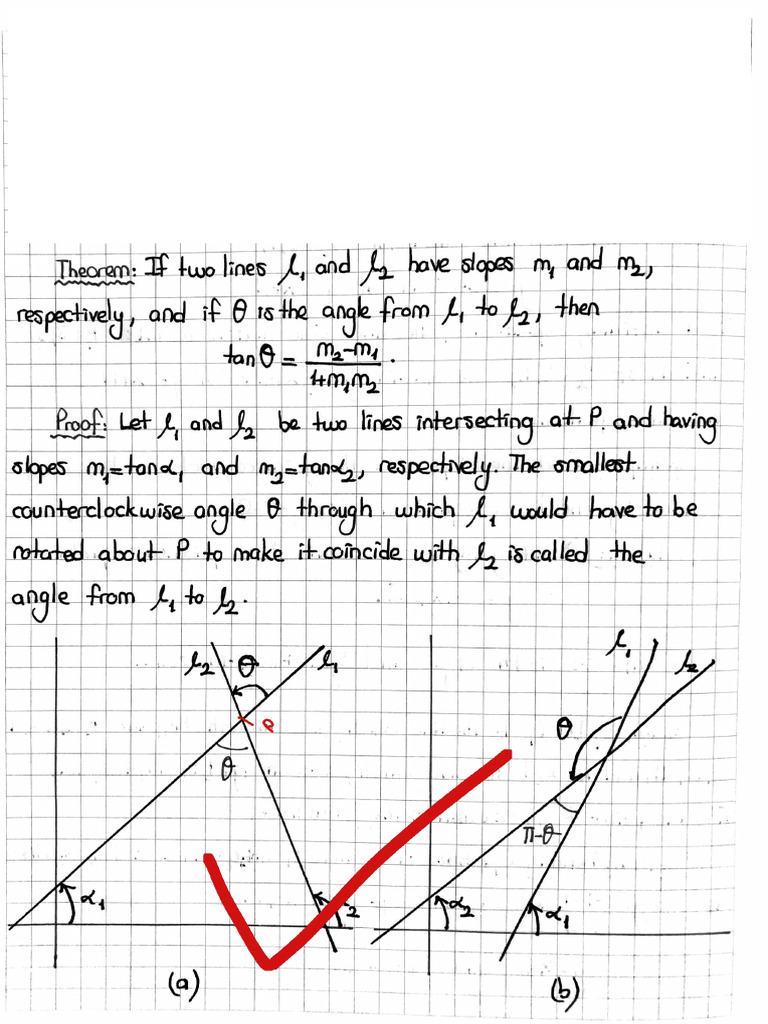 Theorem: If two lines l₁ and l₂ have slopes m₁ and m₂,
respectively, and if θ is the angle from l₁ to l₂, then
tanθ = (m₂-m₁)/(1+m₁m₂).
Proof: Let l₁ and l₂ be two lines intersecting at P and having
slopes m₁=tanα₁ and m₂=tanα₂, respectively. The smallest
counterclockwise angle θ through which l₁ would have to be
rotated about P to make it coincide with l₂ is called the
angle from l₁ to l₂.
l₂ θ l₁
P
θ
α₁
2
(a)
l₁
l₂
θ
π-θ
α₂
α₁
(b)